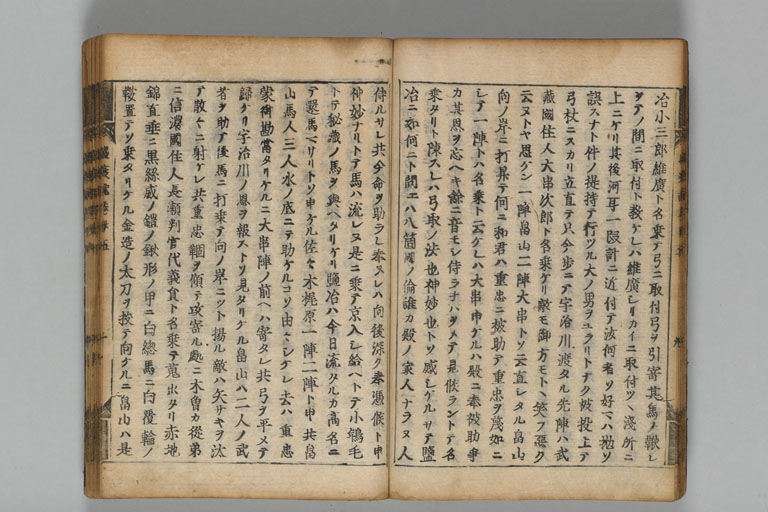 冶小三郎維廣ト名乗テ弓ニ取付弓ヲ引寄其馬ノ鞦シ
ツテノ間ニ取付ト教ケレハ維廣シリカイニ取付ツヽ淺所ニ
上ニケリ其後河耳一段計ニ近付テ汝何者ソ好マハ抛ソ
誤スナト件ノ提持テ行ツル大ノ男ヲユラリトナク被投上テ
弓杖ニスカリ立直テ只今歩ニテ宇治川渡タル先陣ハ武
藏國住人大串次郎ト名乗ケリ敵モ御方モトヽ笑フ惡ク
云ヌトヤ思ケン一陣畠山二陣大串トソ云直シタル畠山
向ノ岸ニ打昇テ何ニ和君ハ重忠ニ被助テ重忠ヲ蔑如ニ
シテ一陣トハ名乗ト云ケレハ大串申ケルハ殿ニ奉被助爭
カ其恩ヲ忘ヘキ餘ニ音モシ侍ラネハヲメテ見候ラントテ名
乗タリト陳スレハ弓取ノ法也神妙也トソ感シケルサテ鹽
冶ニ如何ニト問エハ八箇國ノ倫誰カ殿ノ家人ナラヌ人
侍ルサレ共今命ヲ助ラレ奉スレハ向後深ク奉憑候ト申
神妙ナリトテ馬ハ流レヌ是ニ乗テ京入シ給ヘトテ小鴾毛
トテ秘藏ノ馬ヲ與ヘタリケリ鹽冶ハ今日流タルカ高名ニ
テ還馬ヘリトソ申ケル佐々木梶原一陣二陣ト申共畠
山馬人三人水ノ底ニテ助ケルコソ由々シケレ去ハ重忠
蒙御勘當タリケルニ大串陣ノ前ヘハ寄タレ共弓ヲ平メテ
歸ケリ宇治川ノ恩ヲ報ストソ見タリケル畠山ハ二人ノ武
者ヲ助テ後馬ニ打乗テ向ノ岸ニツト揚ル敵ハ矢サキヲ汰
テ散々ニ射ケレ共重忠ヲ傾テ攻寄ル處ニ木曽カ從弟
ニ信濃國住人長瀬判官代義員ト名乗テ蒐出タリ赤地
錦直垂ニ黒絲威ノ鎧ノ鍬形ノ甲ニ白總馬ニ白覆輪ノ
鞍置テソ乗タリケル金造ノ太刀ヲ拔テ向ケルニ畠山ハ是